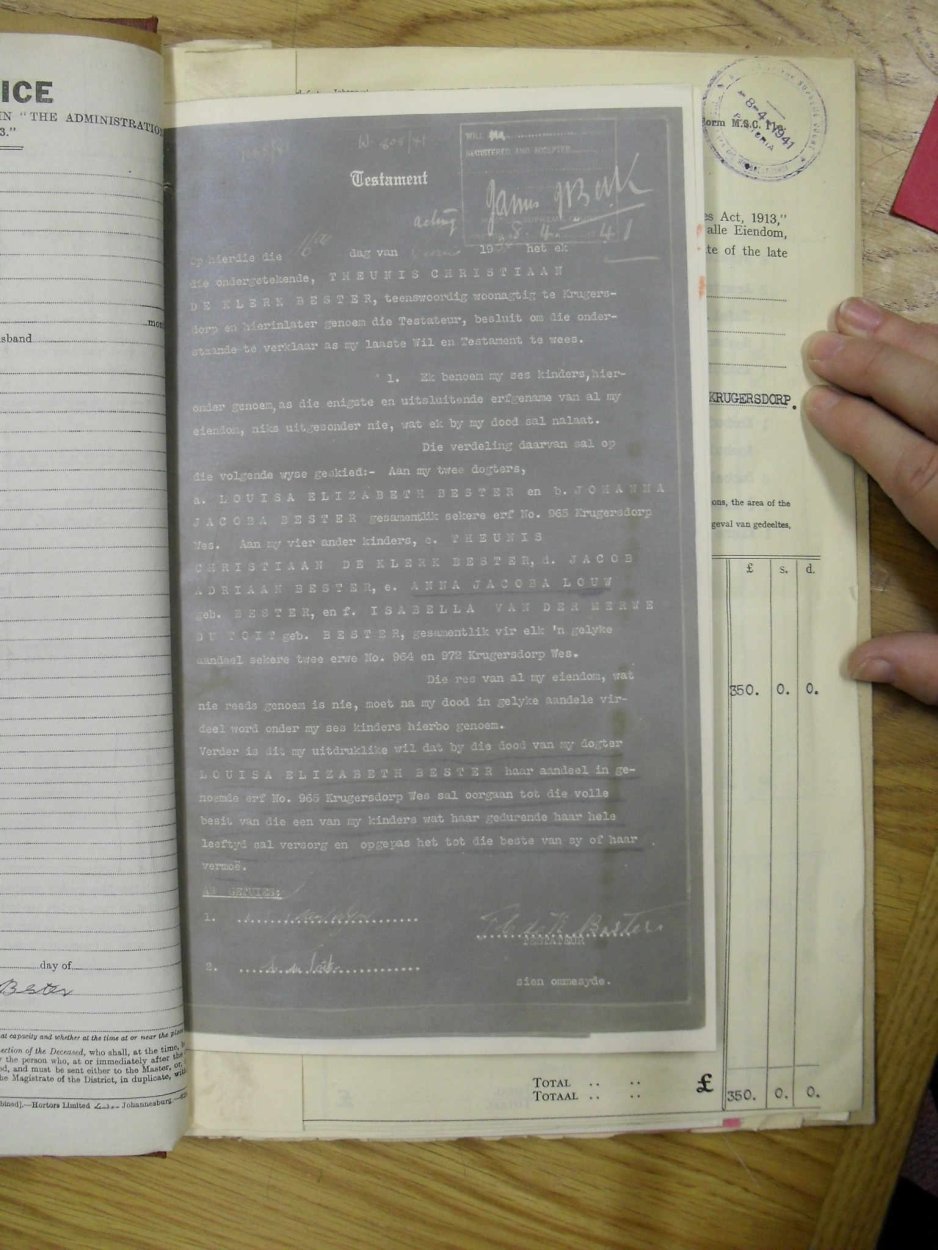 ICE
IN "THE ADMINISTRATIO
3."
sband
day of
Bester
at capacity and whether at the time at or near the place
ection of the Deceased, who shall, at the time, b
y the person who, at or immediately after the
ed, and must be sent either to the Master, or,
he Magistrate of the District, in duplicate, with
bined].—Hortors Limited Johannesburg.
Testament
WILL
REGISTERED AND ACCEPTED
acting
8. 4. 41
Op hierdie die dag van 19 het ek
die ondergetekende, THEUNIS CHRISTIAAN
DE KLERK BESTER, teenswoordig woonagtig te Krugers-
dorp en hierinlater genoem die Testateur, besluit om die onder-
staande te verklaar as my laaste Wil en Testament te wees.
1. Ek benoem my ses kinders, hier-
onder genoem, as die enigste en uitsluitende erfgename van al my
eiendom, niks uitgesonder nie, wat ek by my dood sal nalaat.
Die verdeling daarvan sal op
die volgende wyse geskied:- Aan my twee dogters,
a. LOUISA ELIZABETH BESTER en b. JOHANNA
JACOBA BESTER gesamentlik sekere erf No. 965 Krugersdorp
Wes. Aan my vier ander kinders, c. THEUNIS
CHRISTIAAN DE KLERK BESTER, d. JACOB
ADRIAAN BESTER, e. ANNA JACOBA LOUW
geb. BESTER, en f. ISABELLA VAN DER MERWE
DU TOIT geb. BESTER, gesamentlik vir elk 'n gelyke
aandeel sekere twee erwe No. 964 en 972 Krugersdorp Wes.
Die res van al my eiendom, wat
nie reeds genoem is nie, moet na my dood in gelyke aandele vir-
deel word onder my ses kinders hierbo genoem.
Verder is dit my uitdruklike wil dat by die dood van my dogter
LOUISA ELIZABETH BESTER haar aandeel in ge-
noemde erf No. 965 Krugersdorp Wes sal oorgaan tot die volle
besit van die een van my kinders wat haar gedurende haar hele
leeftyd sal versorg en opgepas het tot die beste van sy of haar
vermoë.
AS GETUIES:
1.
Bester
TESTATEUR
2.
sien ommesyde.
Form M.S.C.
8-4-1941
PRETORIA
es Act, 1913,"
alle Eiendom,
te of the late
KRUGERSDORP.
ons, the area of
geval van gedeeltes,
£ s. d.
350. 0. 0.
TOTAL .. ..
TOTAAL .. ..
£ 350. 0. 0.